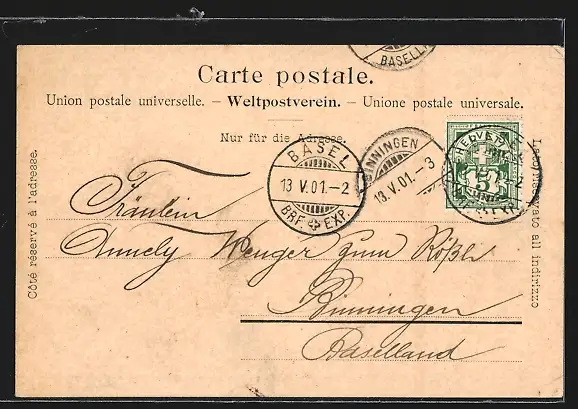 BASELL
Carte postale.
Union postale universelle. – Weltpostverein. – Unione postale universale.
Nur für die Adresse.
BASEL
13 V.01.–2
BRF. EXP.
BINNINGEN
13.V.01.–3
HELVETIA
5
Côté réservé à l'adresse.
Lato riservato all indirizzo
Fräulein
Annely Wenger zum Rößli
Binningen
Baselland